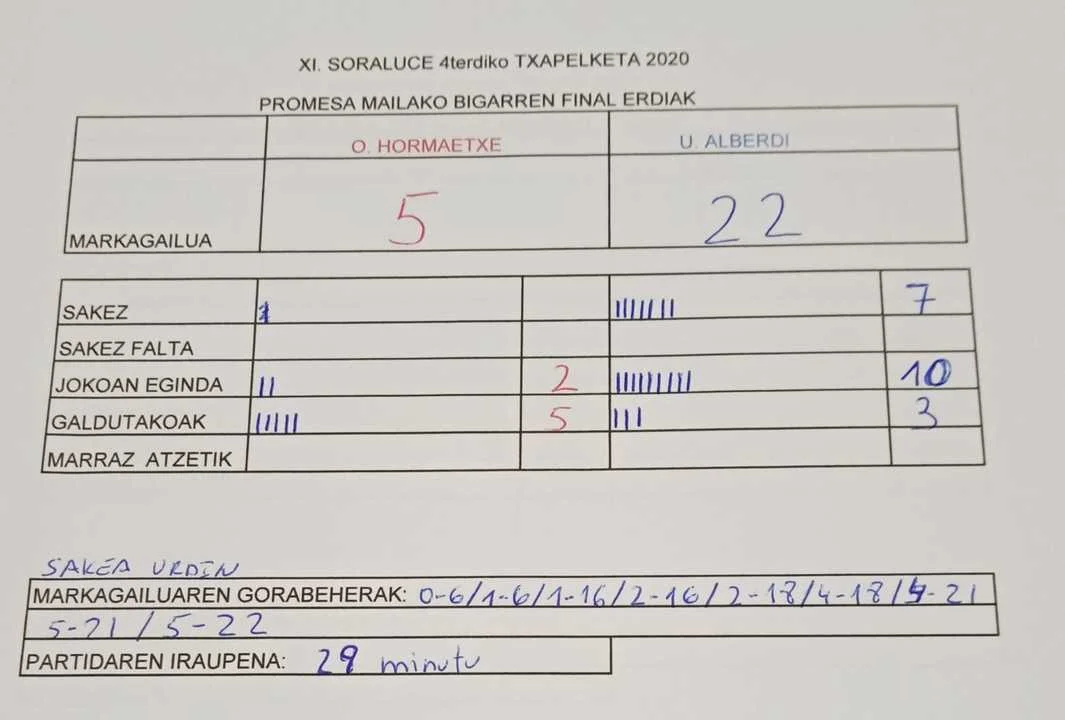 XI. SORALUCE 4terdiko TXAPELKETA 2020
PROMESA MAILAKO BIGARREN FINAL ERDIAK
O. HORMAETXE U. ALBERDI
MARKAGAILUA 5 22
SAKEZ 7
SAKEZ FALTA
JOKOAN EGINDA 2 10
GALDUTAKOAK 5 3
MARRAZ ATZETIK
SAKEA URDIN
MARKAGAILUAREN GORABEHERAK: 0-6/1-6/1-16/2-16/2-18/4-18/4-21
5-21/5-22
PARTIDAREN IRAUPENA: 29 minutu